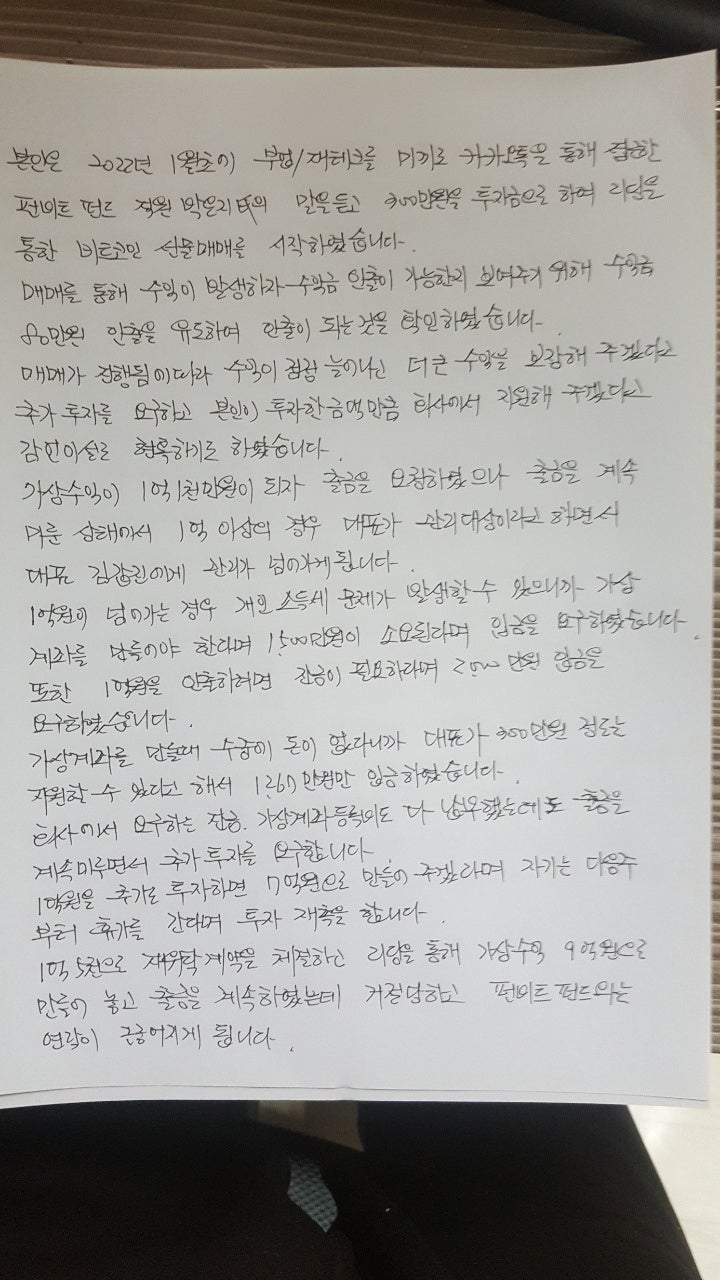 본인은 2022년 1월초에 부업/재테크를 미끼로 카카오톡을 통해 접근한
펀비트 펀드 직원 박은지氏의 말을듣고 300만원을 투자금으로 하여 리딩을
통한 비트코인 선물매매를 시작하였습니다.
매매를 통해 수익이 발생하자 수익금 인출이 가능한지 보여주기 위해 수익금
80만원 인출을 유도하여 인출이 되는것을 확인하였습니다.
매매가 진행됨에따라 수익이 점점 늘어나니 더 큰 수익을 보장해 주겠다고
추가 투자를 요구하고 본인이 투자한금액만큼 회사에서 지원해 주겠다고
감언이설로 현혹하기도 하였습니다.
가상수익이 1억1천만원이 되자 출금을 요청하였으나 출금을 계속
미룬 상태에서 1억 이상의 경우 대표가 관리대상이라고 하면서
대표 에게 관리가 넘어가게됩니다.
1억원이 넘어가는 경우 개인 소득세 문제가 발생할수 있으니까 가상
계좌를 만들어야 한다며 1,500만원이 소요된다며 입금을 요구하였습니다.
또한 1억원을 인출하려면 잔금이 필요하라며 2,000만원 입금을
요구하였습니다.
가상계좌를 만들때 수중에 돈이 없다니까 대표가 300만원 정도는
지원할 수 있다고 해서 1,267만원만 입금하였습니다.
회사에서 요구하는 잔금, 가상계좌등록비도 다 납부했는데도 출금을
계속미루면서 추가투자를 요구합니다.
1억원을 추가로 투자하면 7억원으로 만들어 주겠다며 자기는 다음주
부터 휴가를 간다며 투자 재촉을 합니다.
1억 5천으로 재위탁계약을 체결하고 리딩을 통해 가상수익 9억원으로
만들어 놓고 출금을 계속하였는데 거절당하고 펀비트펀드와는
연락이 끊어지게 됩니다.